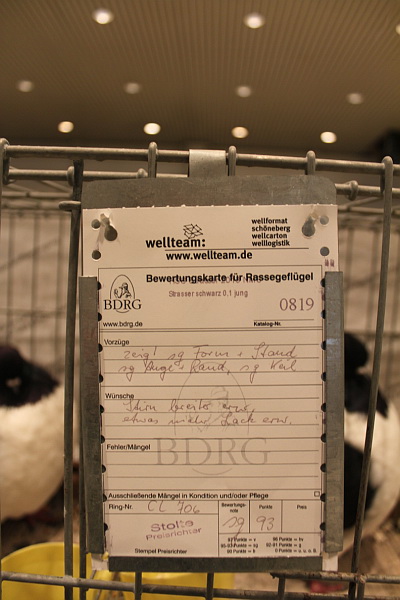 wellteam:
www.wellteam.de
wellformat
schöneberg
wellcarton
welllogistik
Bewertungskarte für Rassegeflügel
Strasser schwarz 0.1 jung
BDRG
0819
www.bdrg.de
Katalog-Nr.
Vorzüge
zeigt sg Form + Stand
sg Auge + Rand, sg Keil
Wünsche
Stirn breiter erw.
etwas mehr Lack erw.
BDRG
Fehler/Mängel
Ausschließende Mängel in Kondition und/oder Pflege
Ring-Nr.
CL 706
Bewertungs-
note
Punkte
Preis
sg 93
Stolte
Preisrichter
Stempel Preisrichter
97 Punkte = v
96 Punkte = hv
90 Punkte = b